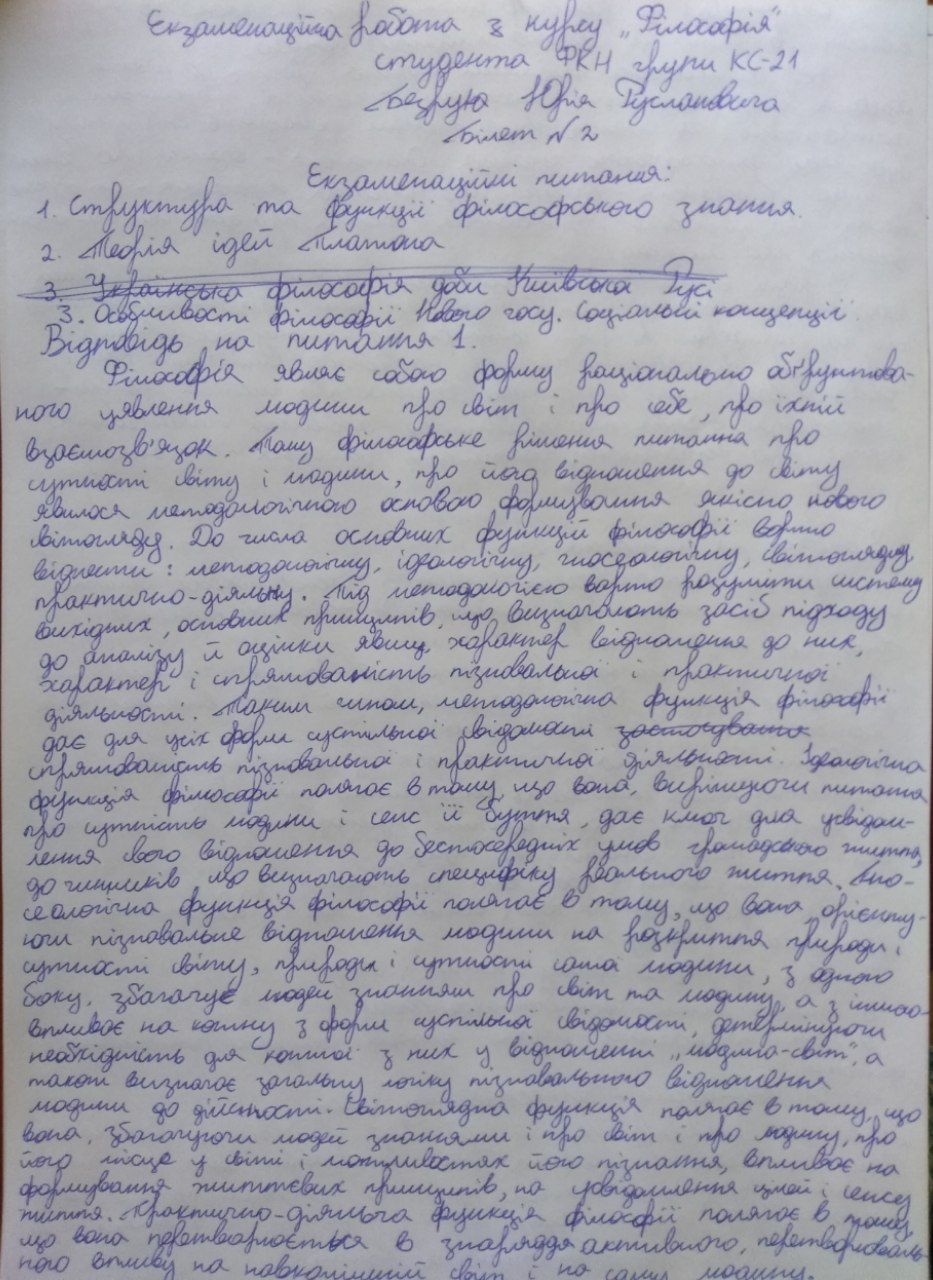 Екзаменаційна робота з курсу „Філософія"
студента ФКН групи КС-21
Безрука Юрія Руслановича
Білет №2
Екзаменаційні питання:
1. Структура та функції філософського знання.
2. Теорія ідей Платона
3. Українська філософія доби Київська Русі
3. Особливості філософії Нового часу. Соціальні концепції.
Відповідь на питання 1.
Філософія являє собою форму раціонально обґрунтова-
ного уявлення людини про світ і про себе, про їхній
взаємозв'язок. Тому філософське рішення питання про
сутності світу і людини, про його відношення до світу
явилося методологічного основою формування якісно нового
світогляду. До числа основних функцій філософії варто
віднести: методологічну, ідеологічну, гносеологічну, світоглядну,
практично-діяльну. Під методологією варто розуміти систему
вихідних, основних принципів, що визначають засіб підходу
до аналізу й оцінки явищ, характер відношення до них,
характер і спрямованість пізнавальної і практичної
діяльності. Таким чином, методологічна функція філософії
дає для усіх форм суспільної свідомості застосування
спрямованість пізнавальної і практичної діяльності. Ідеологічна
функція філософії полягає в тому, що вона, вирішуючи питання
про сутність людини і сенс її буття, дає ключ для усвідом-
лення свого відношення до беспосередніх умов громадського життя,
до чинників що визначають специфіку реального життя. Гно-
сеологічна функція філософії полягає в тому, що вона орієнту-
ючи пізнавальне відношення людини на розкриття природи і
сутності світу, природи і сутності самої людини, з одного
боку, збагачує людей знанням про світ та людину, а з іншого-
впливає на кожну з форм суспільної свідомості, детермінуючи
необхідність для кожної з них у відношенні „людина-світ", а
також визначає загальну логіку пізнавального відношення
людини до дійсності. Світоглядна функція полягає в тому, що
вона, збагачуючи людей знаннями і про світ і про людину, про
його місце у світі і можливостях його пізнання, впливає на
формування життєвих принципів, на усвідомлення цілей і сенсу
життя. Практично-діяльна функція філософії полягає в тому,
що вона перетворюється в знаряддя активного, перетворюваль-
ного впливу на навколишній світ і на саму людину.